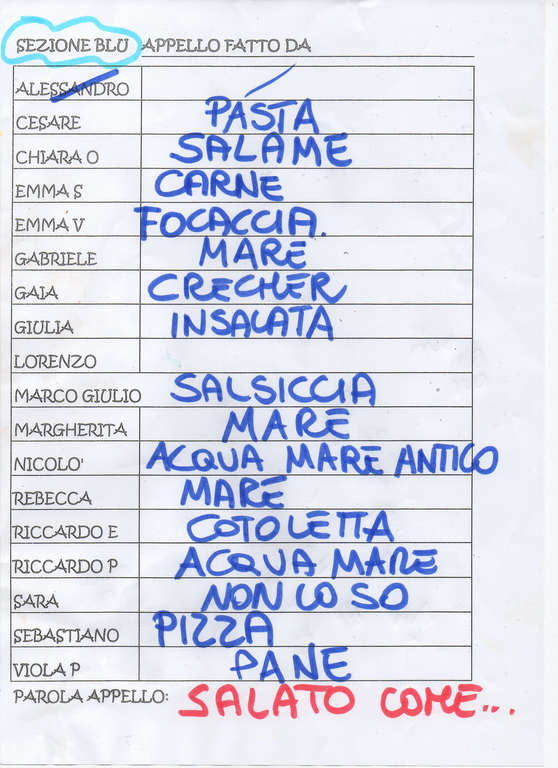 SEZIONE BLU APPELLO FATTO DA
ALESSANDRO
CESARE PASTA
CHIARA O SALAME
EMMA S CARNE
EMMA V FOCACCIA.
GABRIELE MARE
GAIA CRECHER
GIULIA INSALATA
LORENZO
MARCO GIULIO SALSICCIA
MARGHERITA MARE
NICOLO' ACQUA MARE ANTICO
REBECCA MARE
RICCARDO E COTOLETTA
RICCARDO P ACQUA MARE
SARA NON LO SO
SEBASTIANO PIZZA
VIOLA P PANE
PAROLA APPELLO: SALATO COME...